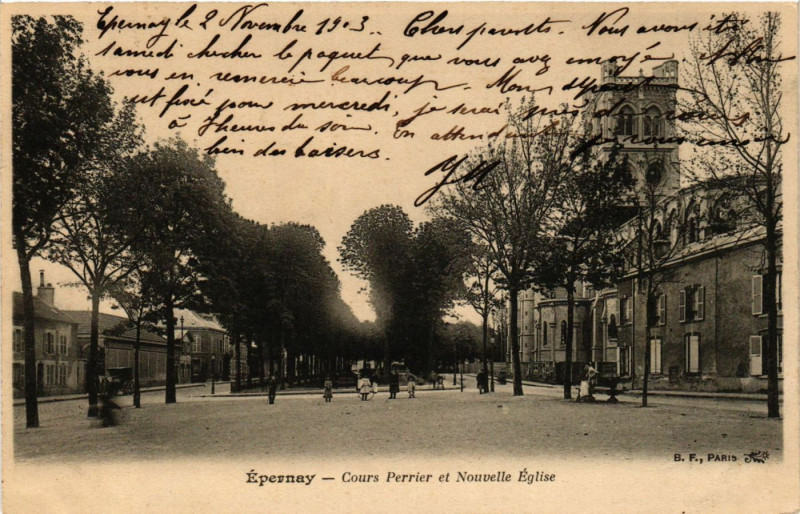 Epernay le 2 Novembre 1903. Chers parents. Nous avons été
samedi chercher le paquet que vous avez envoyé
vous en remercie beaucoup. Mon départ
est fixé pour mercredi, je serai près de vous
à 7 heures du soir. En attendant
bien des baisers.
Épernay — Cours Perrier et Nouvelle Église
B. F., PARIS